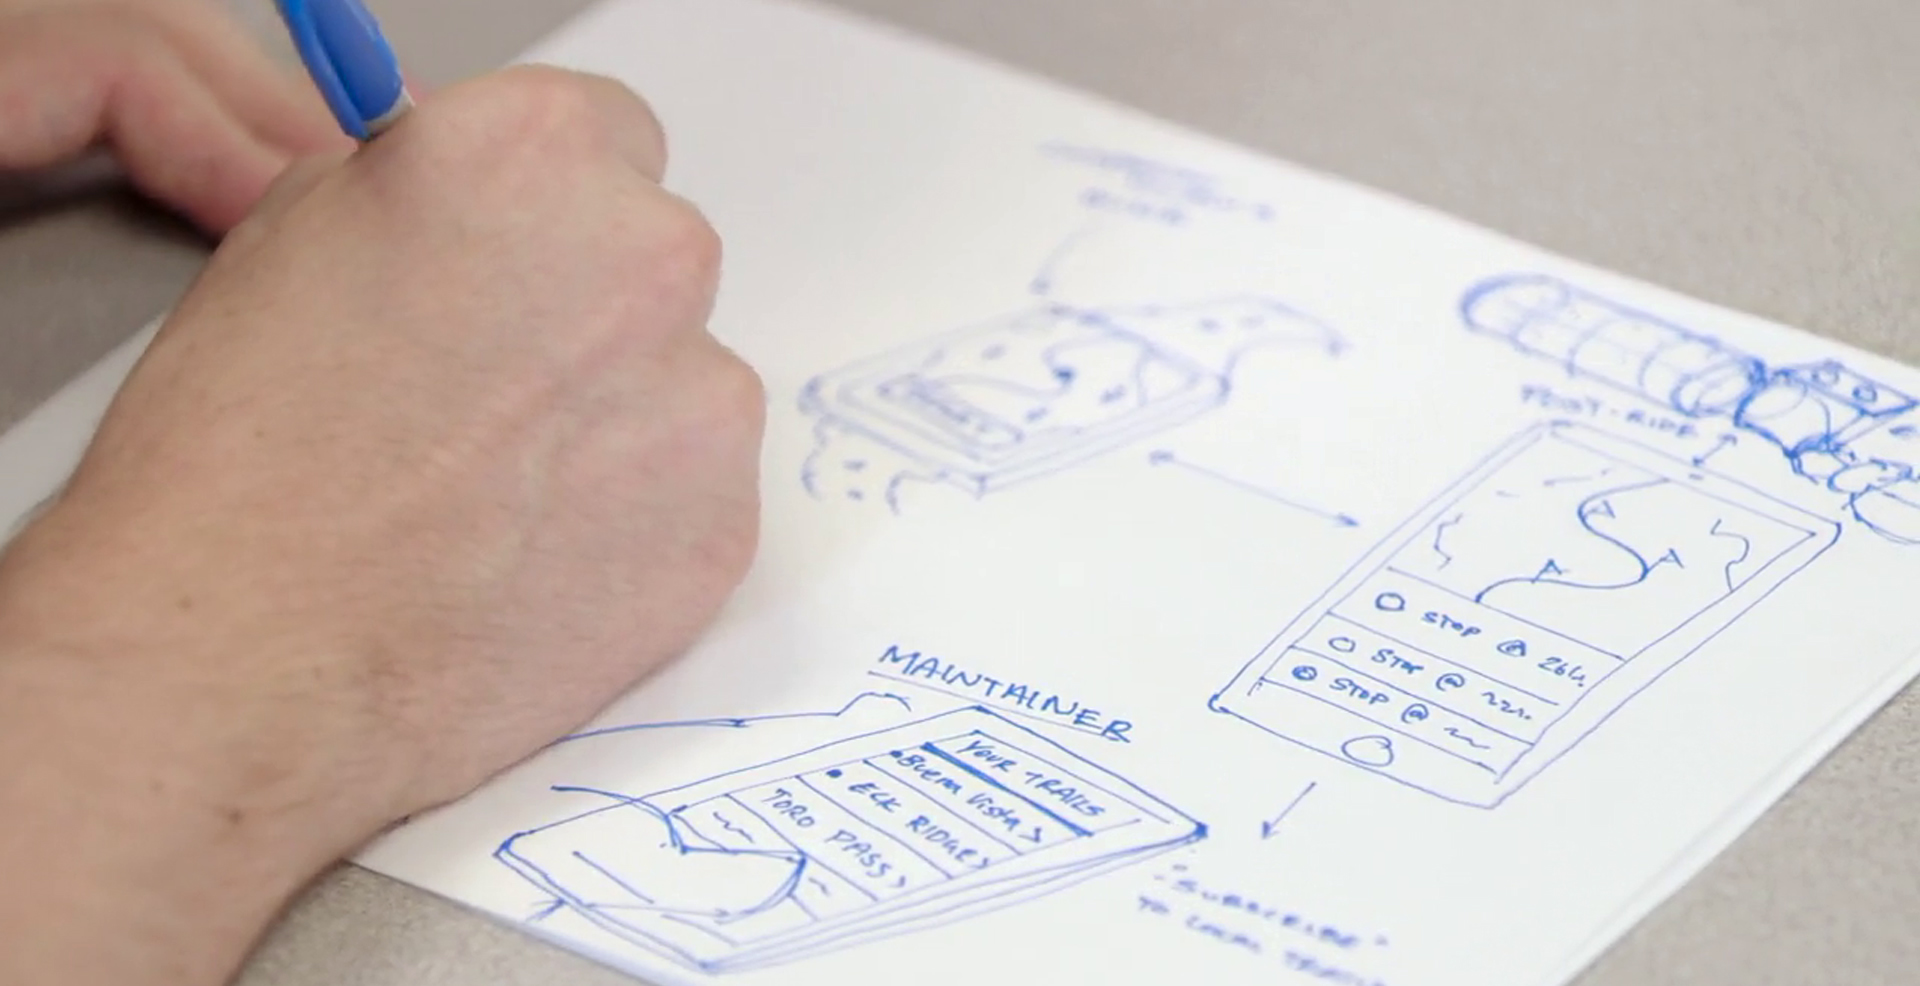 POST-RIDE
STOP @ 26%
STOP @
STOP @
MAINTAINER
YOUR TRAILS
Buena Vista >
ECK RIDGE >
TORO PASS >
"SUBSCRIBE"
TO LOCAL TRAILS